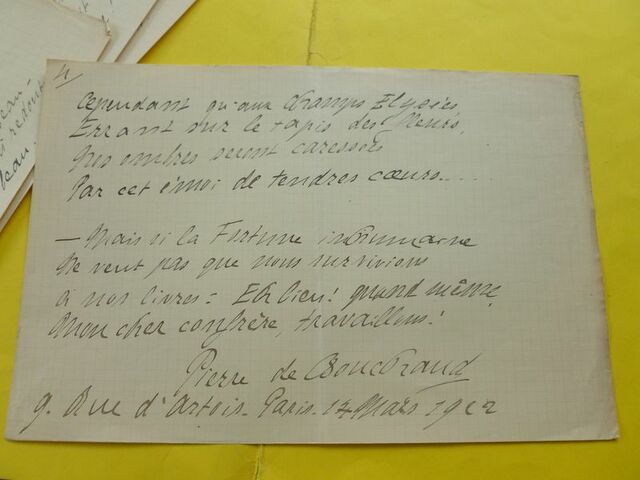 4/
Cependant qu'aux Champs Elysées,
Errant sur le tapis des fleurs,
Nos ombres seront caressées
Par cet émoi de tendres cœurs.....
— Mais si la Fortune inhumaine
Ne veut pas que nous survivions
à nos livres = Eh bien! quand même,
Mon cher confrère, travaillons!
Pierre de Bouchaud
9. Rue d'Artois. Paris. 14 Mars 1912
eau
leau.